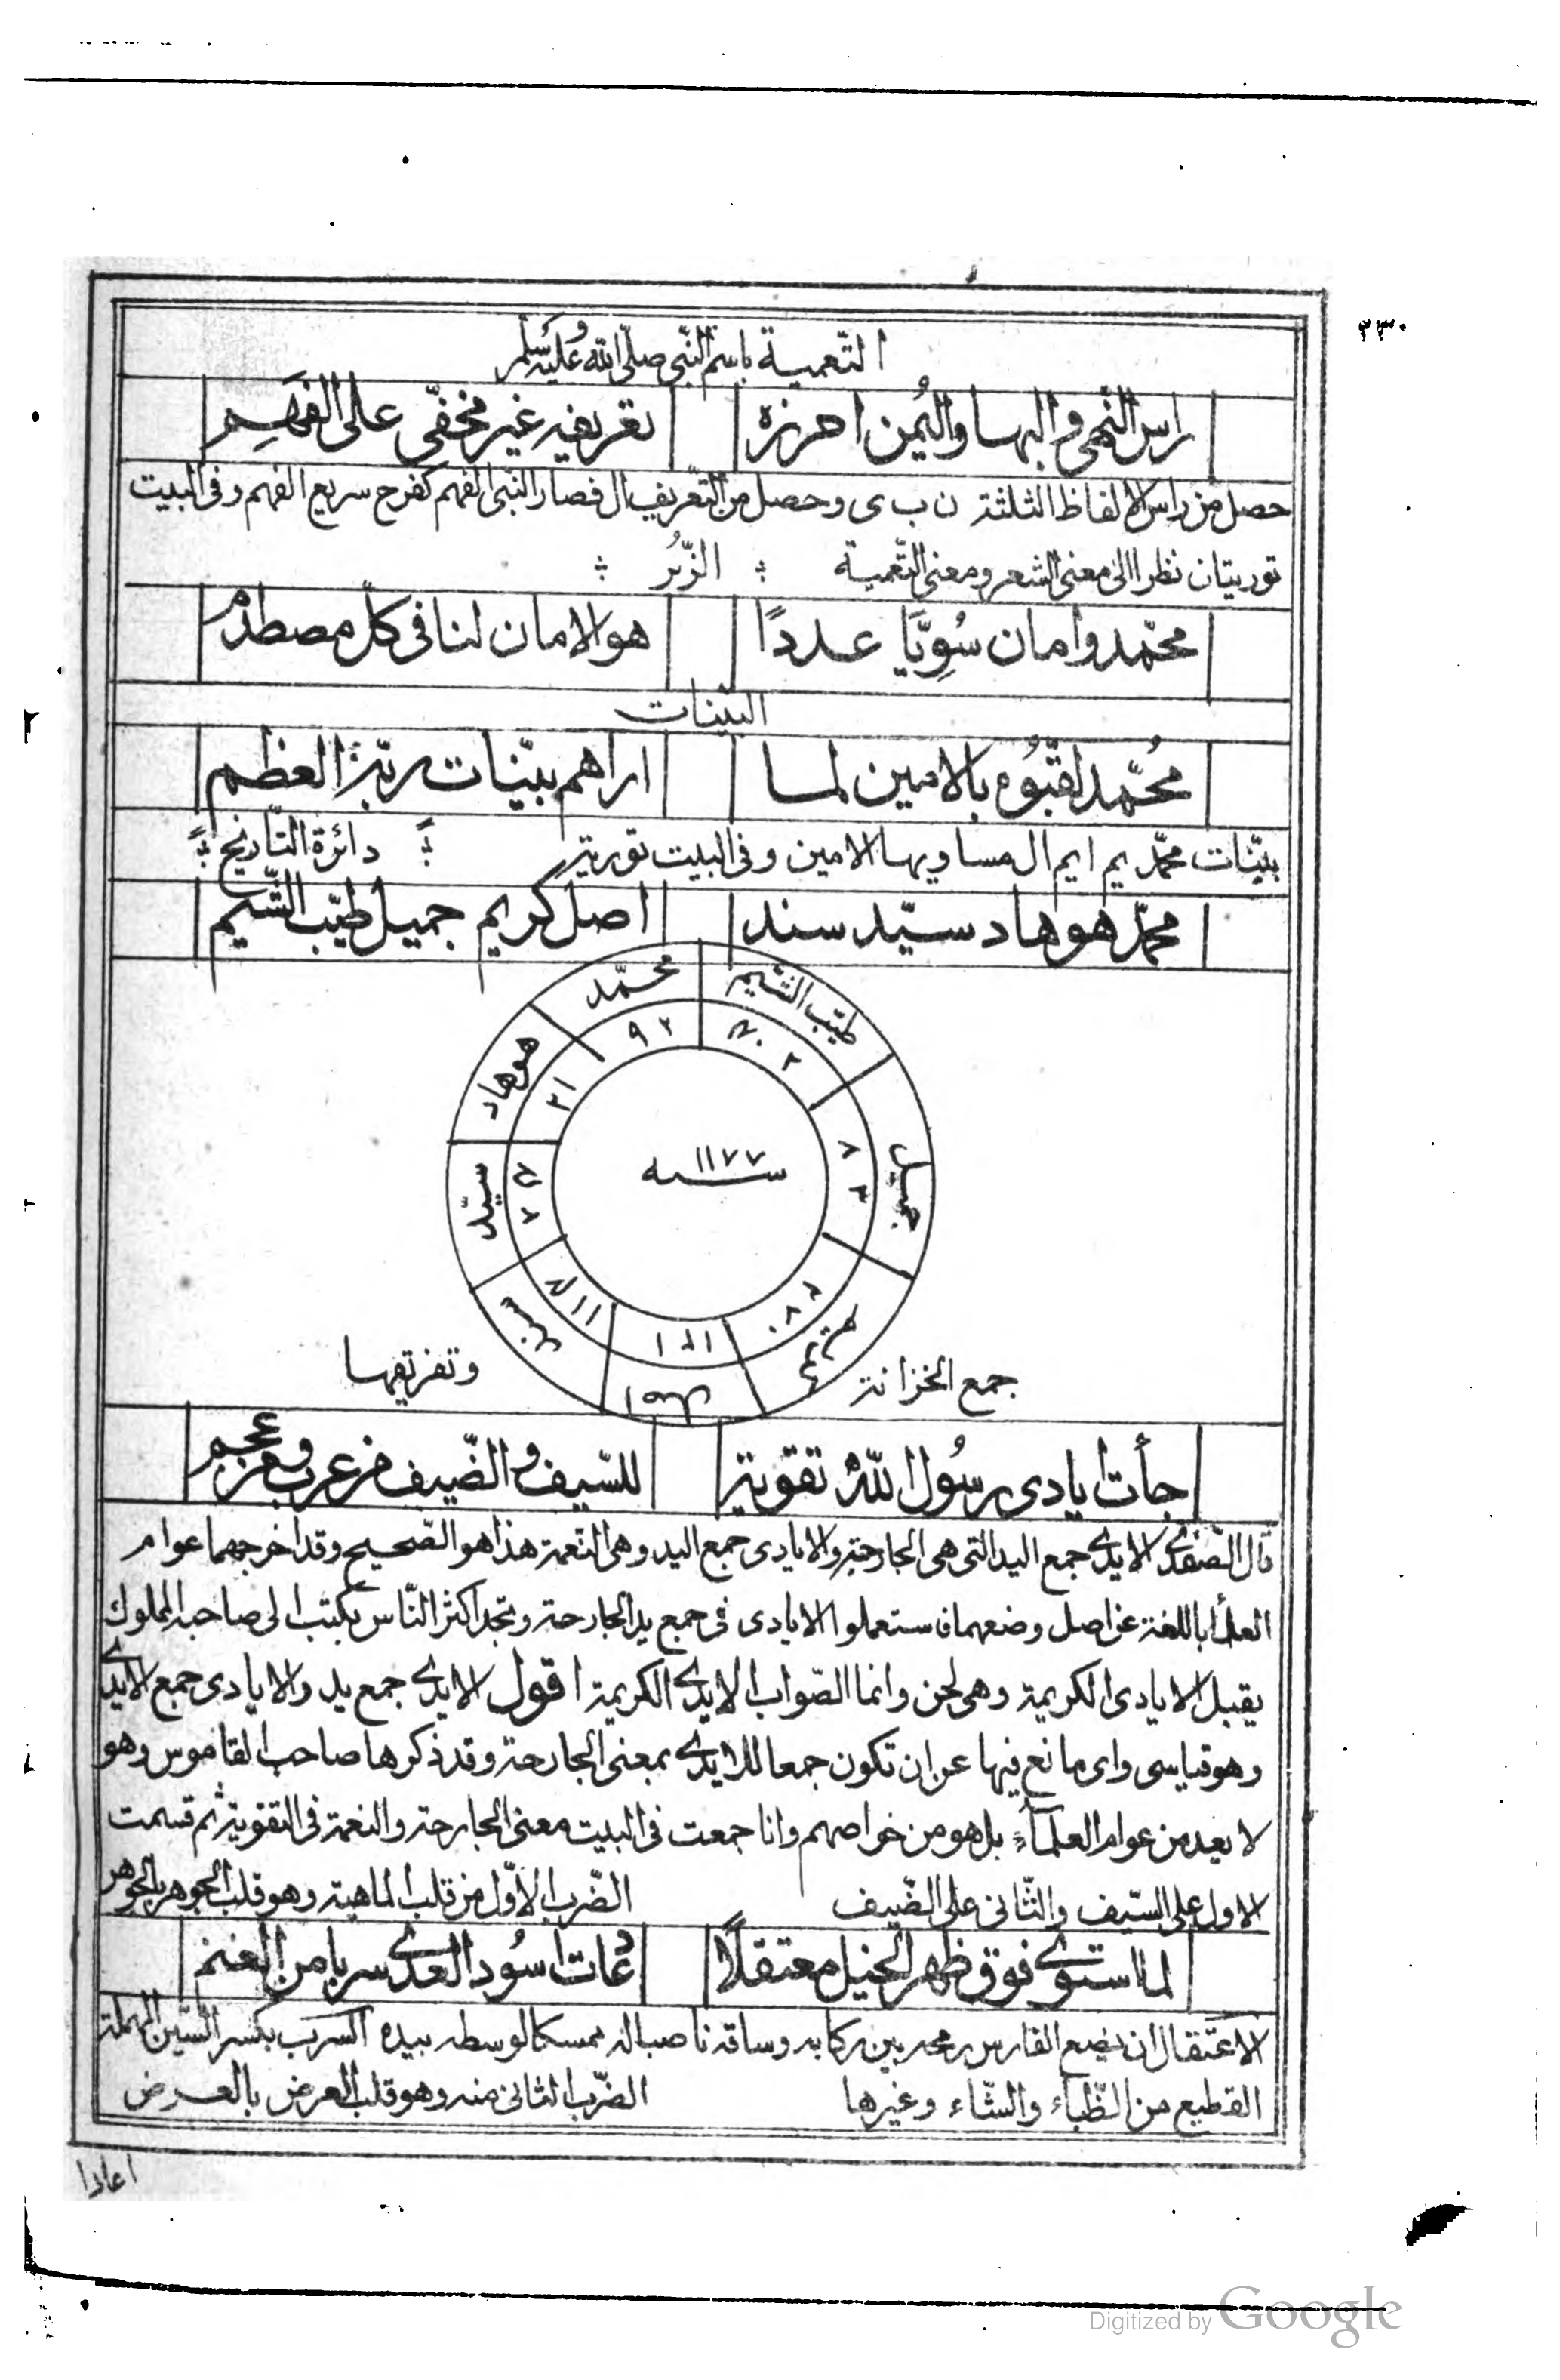 ٢٣٠
التّعمية باسم النّبي صلّى الله عليه وسلّم
راس النّهى والبها واليُمن احرزه تعريفه غير مخفّى على الفَهِم
حصل من راس الالفاظ الثلثة ن ب ى وحصل من التّعريف ال فصار النّبى الفهم كفرح سريع الفهم وفى البيت
توريتان نظرا الى معنى الشعر ومعنى التّعمية ؞ الزُّبُر ؞
محمّد وامان سُوِّيَا عددًا هو الامان لنا فى كلّ مصطدم
البيّنات
مُحمّد لقّبُوه بالامين لما اراهم بيّنات ربّه العظم
بيّنات محمّد يم ا يم ال مساويها الامين وفى البيت تورية ؞ دائرة التّاريخ ؞
محمّد هو هاد سيّد سند اصل كريم جميل طيّب الشّيم
محمّد ٩٢
هو هاد ٢١
سيّد ٧٤
سند ١١٤
اصل ١٢١
كريم ٢٧٠
جميل ٨٣
طيّب الشّيم ٤٠٢
سنه ١١٧٧
جمع الخزانة وتفريقها
جأت ايادى رسُول اللهُ تقوية للسّيف والضّيف من عرب ومن عجم
قال الصّفدى الايدى جمع اليد التى هى الجارحة والايادى جمع اليد وهى النّعمة هذا هو الصّحيح وقد اخرجهما عوام
العلمأ باللغة عن اصل وضعهما فاستعملوا الايادى فى جمع يد الجارحة وتجد اكثر النّاس يكتب الى صاحبه المملوك
يقبل الايادى الكريمة وهى لحن وانما الصّواب الايدى الكريمة اقول الايدى جمع يد والايادى جمع الايدى
وهو قياسى واى مانع فيها عن ان تكون جمعا للايدى بمعنى الجارحة وقد ذكرها صاحب القاموس وهو
لا يعد من عوام العلمآء بل هو من خواصهم وانا جمعت فى البيت معنى الجارحة والنعمة فى التقوية ثم قسمت
الاول على السّيف والثّانى على الضّيف الضّرب الاوّل من قلب الماهية وهو قلب الجوهر بالجوهر
لما استوى فوق ظهر الخيل معتقلًا عات سُود العدى سربا من الغنم
الاعتقال ان يضع الفارس رمحه بين ركابه وساقه ناصبا له ممسكا لوسطه بيده السرب بكسر السّين المهملة
القطيع من الظّباء والشّاء وغيرها الضّرب الثانى منه وهو قلب العرض بالعرض
اعادا
Digitized by Google